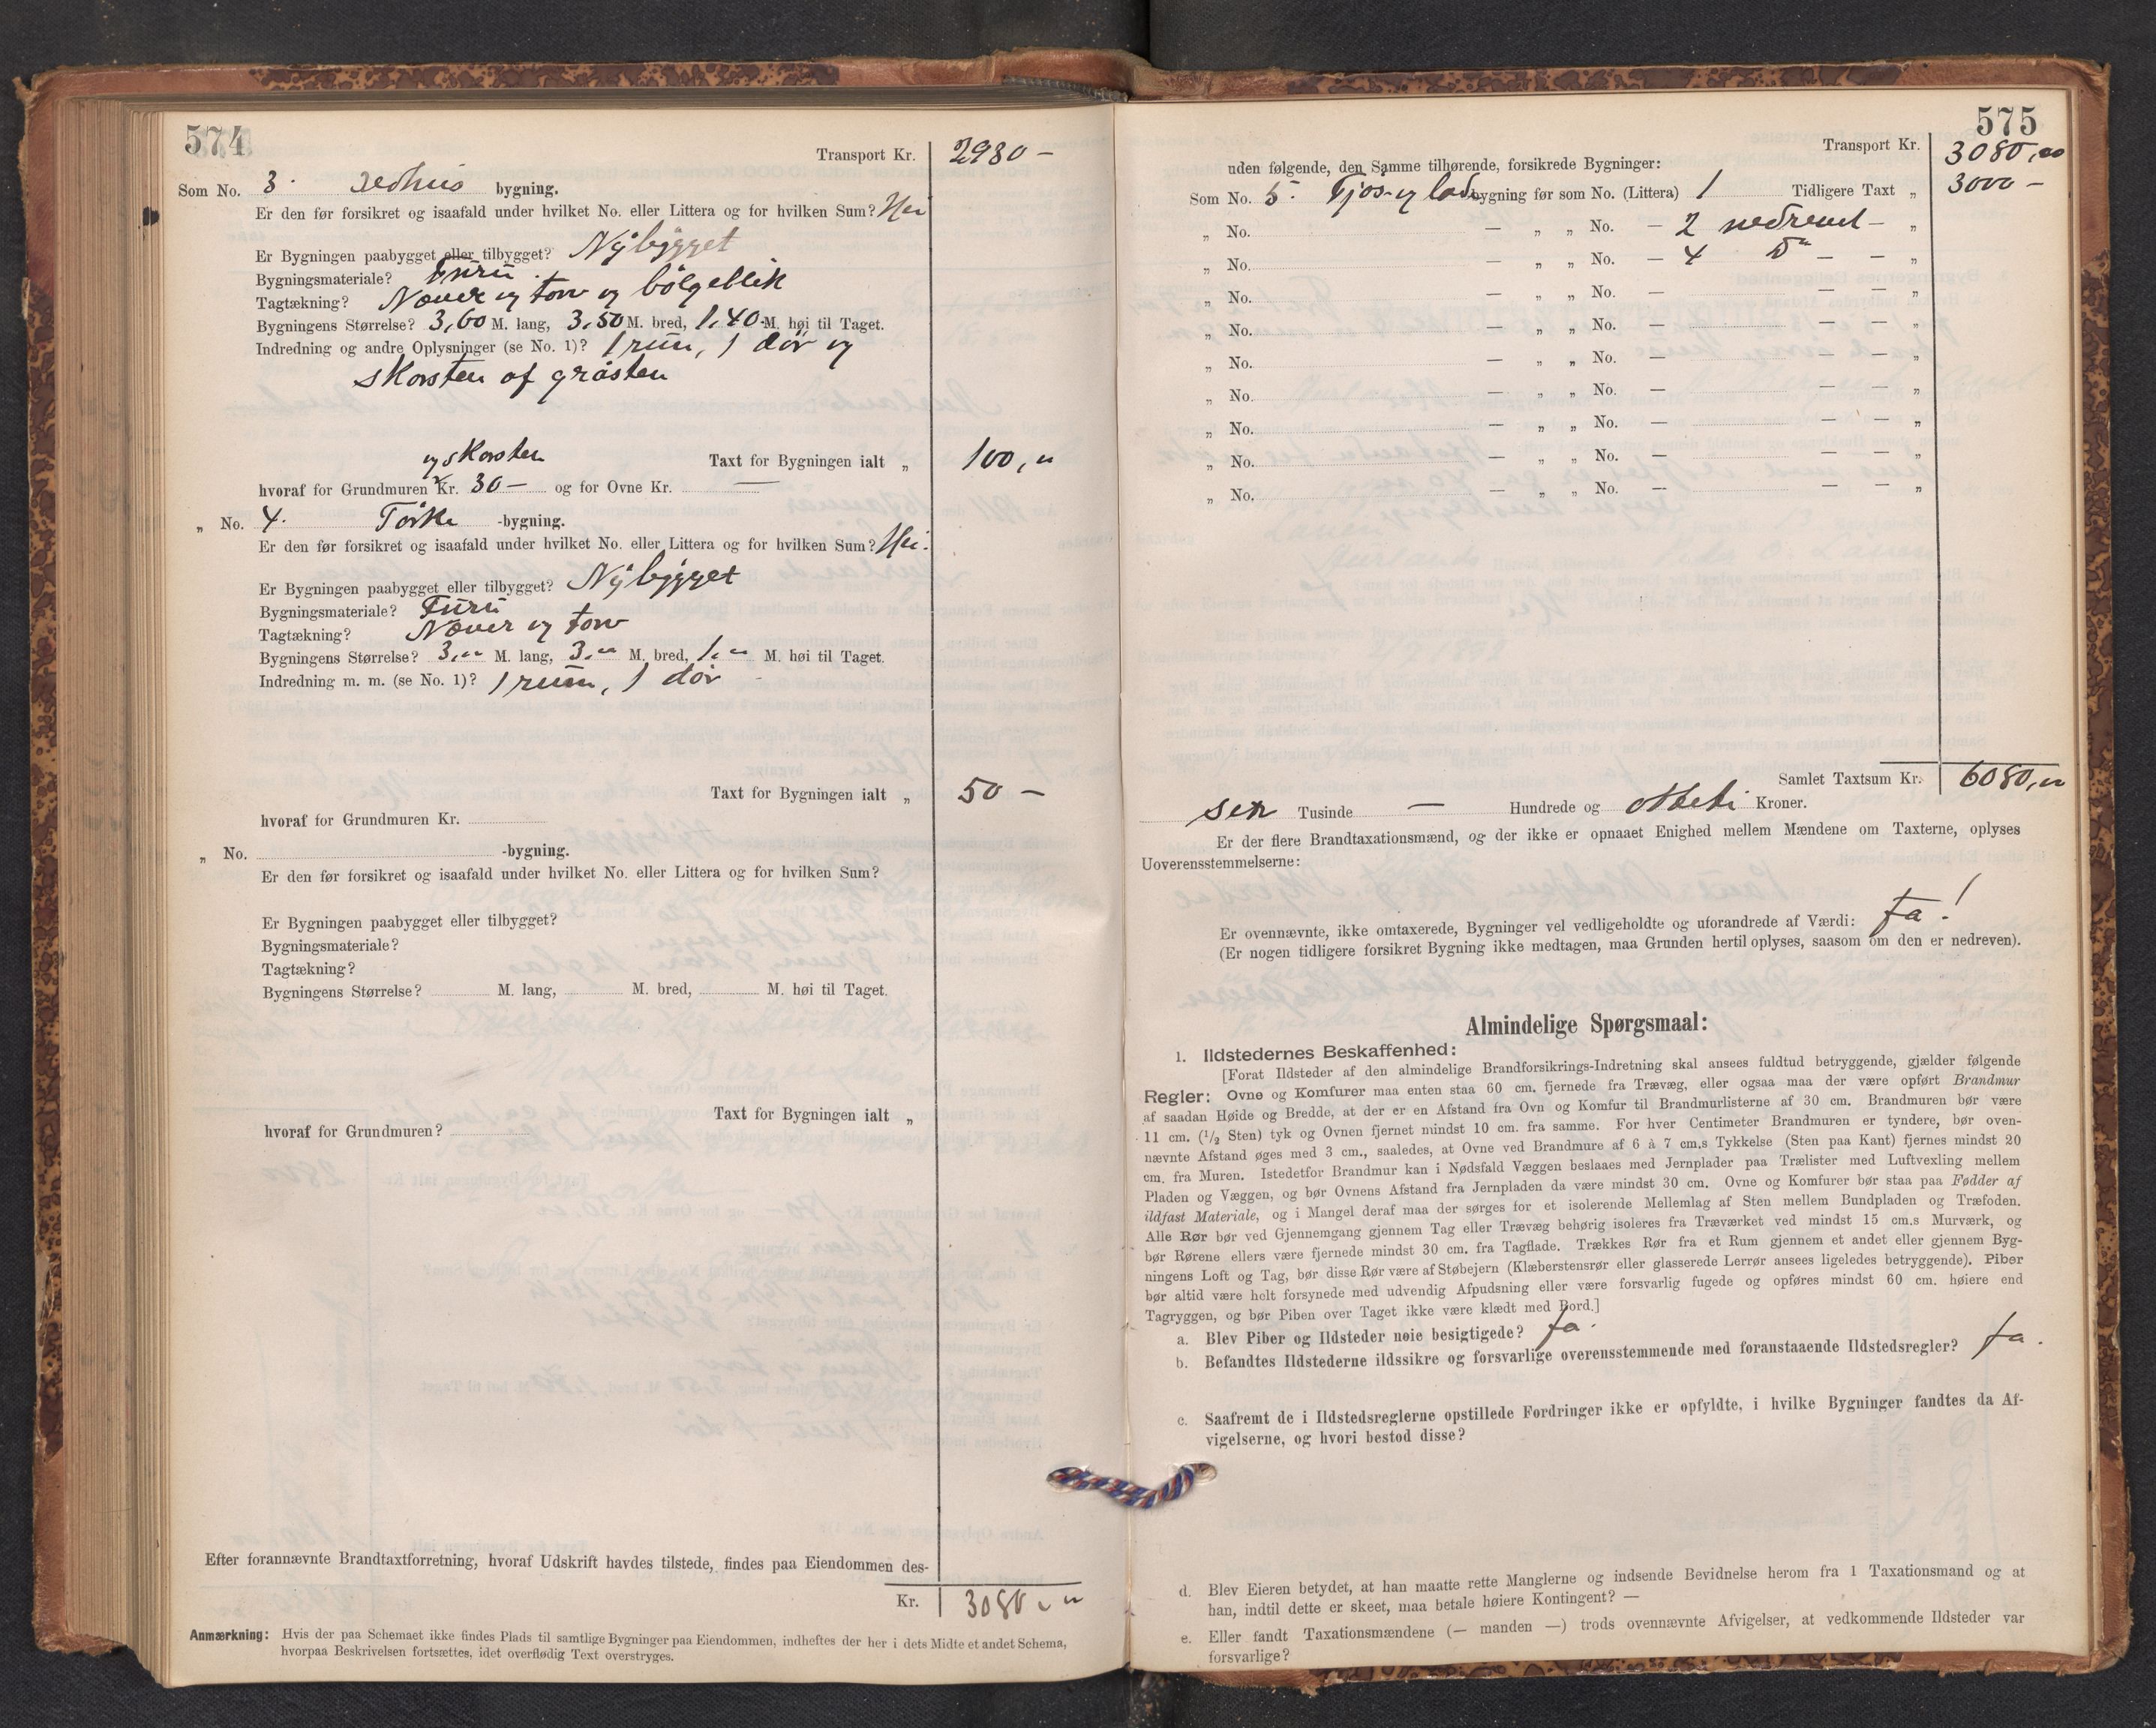 574
Transport Kr. 2930 —
Som No. 3. Ildhus bygning.
Er den før forsikret og isaafald under hvilket No. eller Littera og for hvilken Sum? Nei
Er Bygningen paabygget eller tilbygget? Nybygget
Bygningsmateriale? Furu.
Tagtækning? Næver og torv og bölgeblik
Bygningens Størrelse? 3,60 M. lang, 3,50 M. bred, 1.40 M. høi til Taget.
Indredning og andre Oplysninger (se No. 1)? 1 rum, 1 dör og
skorsten af gråsten
Taxt for Bygningen ialt „ 100,"
og skorsten
hvoraf for Grundmuren Kr. 30 — og for Ovne Kr. —
„ No. 4. Törke -bygning.
Er den før forsikret og isaafald under hvilket No. eller Littera og for hvilken Sum? Nei.
Er Bygningen paabygget eller tilbygget? Nybygget
Bygningsmateriale? Furu
Tagtækning? Næver og torv
Bygningens Størrelse? 3,"" M. lang, 3,"" M. bred, 1,"" M. høi til Taget.
Indredning m. m. (se No. 1)? 1 rum, 1 dör
Taxt for Bygningen ialt „ 50 —
hvoraf for Grundmuren Kr.
„ No. -bygning.
Er den før forsikret og isaafald under hvilket No. eller Littera og for hvilken Sum?
Er Bygningen paabygget eller tilbygget?
Bygningsmateriale?
Tagtækning?
Bygningens Størrelse? M. lang, M. bred, M. høi til Taget.
Taxt for Bygningen ialt „
hvoraf for Grundmuren?
Efter forannævnte Brandtaxtforretning, hvoraf Udskrift havdes tilstede, findes paa Eiendommen des-
Kr. 3080,"
Anmærkning: Hvis der paa Schemaet ikke findes Plads til samtlige Bygninger paa Eiendommen, indheftes der her i dets Midte et andet Schema,
hvorpaa Beskrivelsen fortsættes, idet overflødig Text overstryges.
575
Transport Kr. 3080,00
uden følgende, den Samme tilhørende, forsikrede Bygninger:
Som No. 5. Fjös og lade bygning før som No. (Littera) 1 Tidligere Taxt „ 3000 —
„ No. — „ „ No. — 2 nedrevet — „
„ No. — „ „ No. — 4 Do — — „
„ No. — „ „ No. — — — „
„ No. — „ „ No. — — — „
„ No. — „ „ No. — — — „
„ No. — „ „ No. — — — „
„ No. — „ „ No. — — — „
„ No. — „ „ No. — — — „
„ No. — „ „ No. — — — „
Samlet Taxtsum Kr. 6080,"
sex Tusinde — Hundrede og otteti Kroner.
Er der flere Brandtaxationsmænd, og der ikke er opnaaet Enighed mellem Mændene om Taxterne, oplyses
Uoverensstemmelserne:
Er ovennævnte, ikke omtaxerede, Bygninger vel vedligeholdte og uforandrede af Værdi: Ja!
(Er nogen tidligere forsikret Bygning ikke medtagen, maa Grunden hertil oplyses, saasom om den er nedreven).
Almindelige Spørgsmaal:
1. Ildstedernes Beskaffenhed:
[Forat Ildsteder af den almindelige Brandforsikrings-Indretning skal ansees fuldtud betryggende, gjælder følgende
Regler: Ovne og Komfurer maa enten staa 60 cm. fjernede fra Trævæg, eller ogsaa maa der være opført Brandmur
af saadan Høide og Bredde, at der er en Afstand fra Ovn og Komfur til Brandmurlisterne af 30 cm. Brandmuren bør være
11 cm. (1/2 Sten) tyk og Ovnen fjernet mindst 10 cm. fra samme. For hver Centimeter Brandmuren er tyndere, bør oven-
nævnte Afstand øges med 3 cm., saaledes, at Ovne ved Brandmure af 6 à 7 cm.s Tykkelse (Sten paa Kant) fjernes mindst 20
cm. fra Muren. Istedetfor Brandmur kan i Nødsfald Væggen beslaaes med Jernplader paa Trælister med Luftvexling mellem
Pladen og Væggen, og bør Ovnens Afstand fra Jernpladen da være mindst 30 cm. Ovne og Komfurer bør staa paa Fødder af
ildfast Materiale, og i Mangel deraf maa der sørges for et isolerende Mellemlag af Sten mellem Bundpladen og Træfoden.
Alle Rør bør ved Gjennemgang gjennem Tag eller Trævæg behørig isoleres fra Træværket ved mindst 15 cm.s Murværk, og
bør Rørene ellers være fjernede mindst 30 cm. fra Tagflade. Trækkes Rør fra et Rum gjennem et andet eller gjennem Byg-
ningens Loft og Tag, bør disse Rør være af Støbejern (Klæberstensrør eller glasserede Lerrør ansees ligeledes betryggende). Piber
bør altid være helt forsynede med udvendig Afpudsning eller være forsvarlig fugede og opføres mindst 60 cm. høiere end
Tagryggen, og bør Piben over Taget ikke være klædt med Bord.]
a. Blev Piber og Ildsteder nøie besigtigede? Ja.
b. Befandtes Ildstederne ildssikre og forsvarlige overensstemmende med foranstaaende Ildstedsregler? Ja.
c. Saafremt de i Ildstedsreglerne opstillede Fordringer ikke er opfyldte, i hvilke Bygninger fandtes da Af-
vigelserne, og hvori bestod disse?
d. Blev Eieren betydet, at han maatte rette Manglerne og indsende Bevidnelse herom fra 1 Taxationsmand og at
han, indtil dette er skeet, maa betale høiere Kontingent? —
e. Eller fandt Taxationsmændene (— manden —) trods ovennævnte Afvigelser, at vedkommende Ildsteder var
forsvarlige?